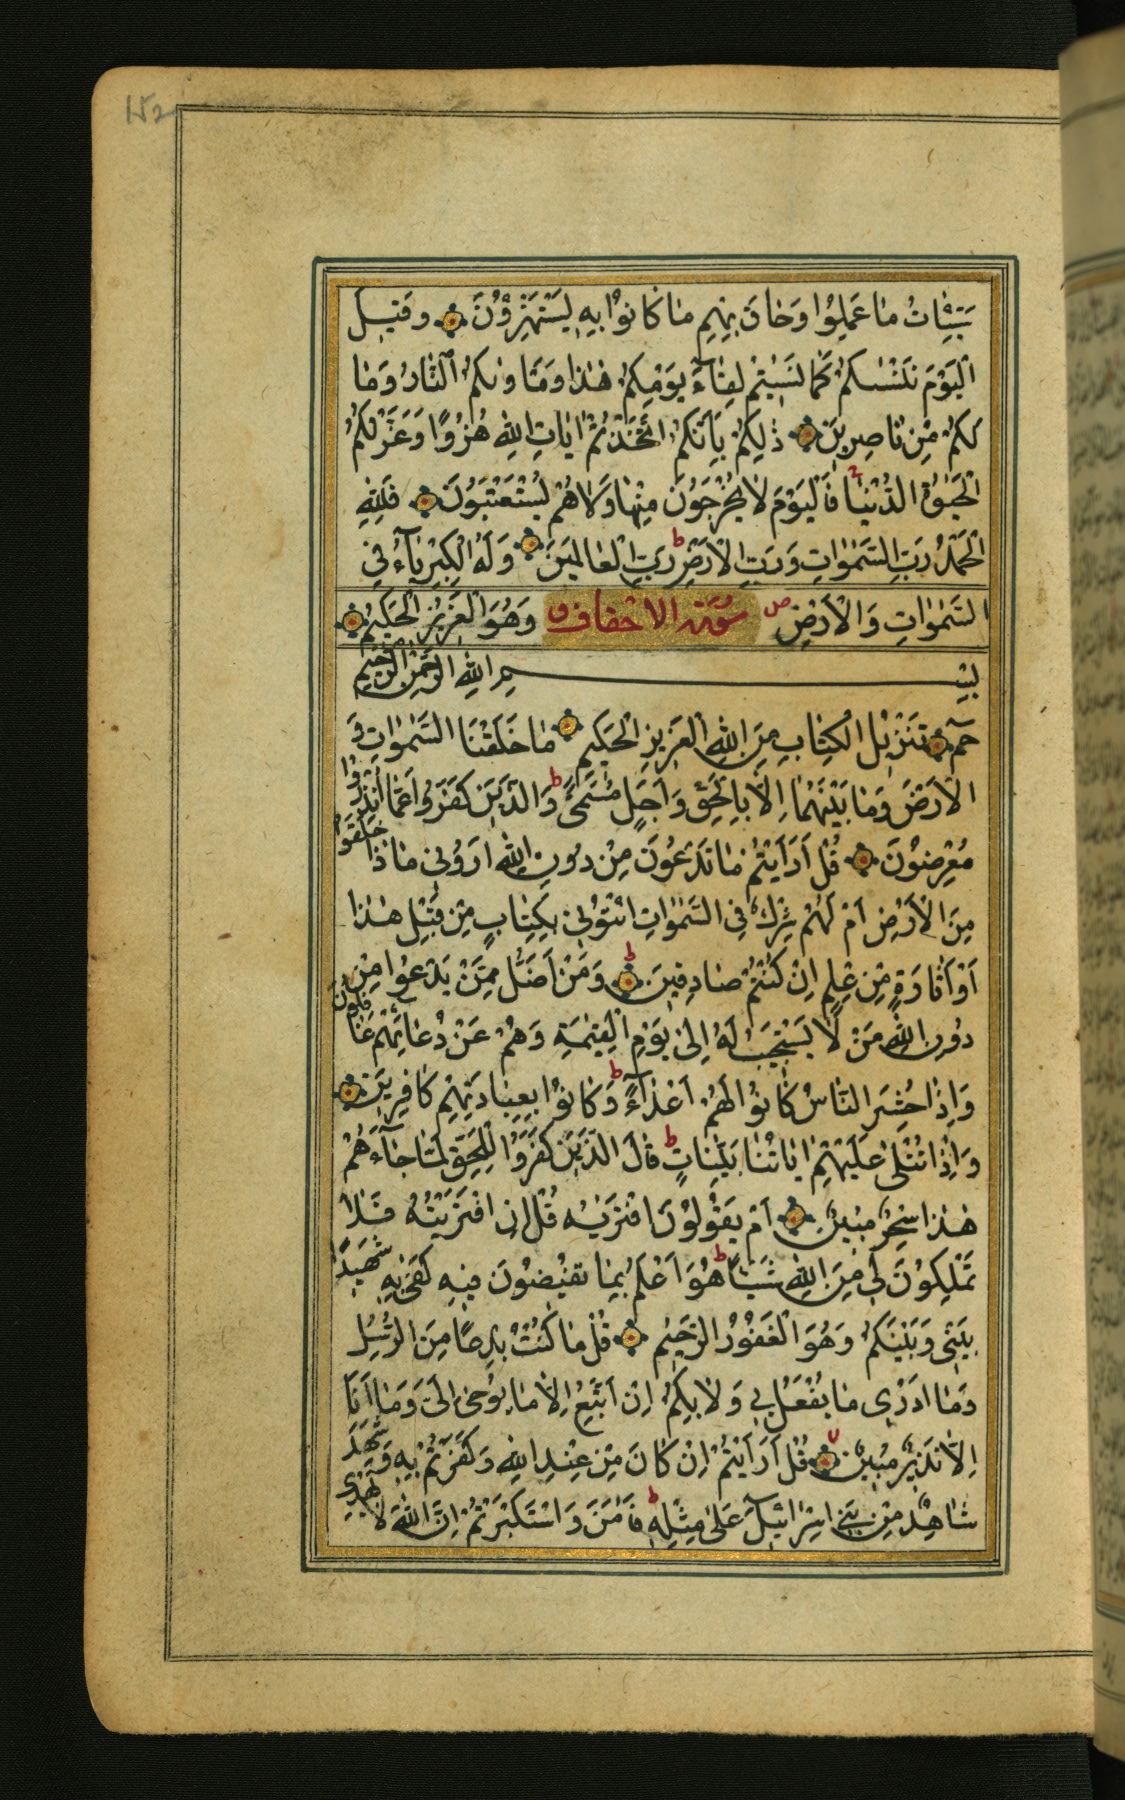 سَيِّئَاتُ مَا عَمِلُوا وَحَاقَ بِهِمْ مَا كَانُوا بِهِ يَسْتَهْزِؤُنَ وَقِيلَ
الْيَوْمَ نَنْسٰىكُمْ كَمَا نَسِيتُمْ لِقَاءَ يَوْمِكُمْ هٰذَا وَمَاْوٰىكُمُ النَّارُ وَمَا
لَكُمْ مِنْ نَاصِرِينَ ذٰلِكُمْ بِاَنَّكُمُ اتَّخَذْتُمْ اٰيَاتِ اللّٰهِ هُزُوًا وَغَرَّتْكُمُ
الْحَيٰوةُ الدُّنْيَا فَالْيَوْمَ لَا يُخْرَجُونَ مِنْهَا وَلَا هُمْ يُسْتَعْتَبُونَ فَلِلّٰهِ
الْحَمْدُ رَبِّ السَّمٰوَاتِ وَرَبِّ الْاَرْضِ ط رَبِّ الْعَالَمِينَ وَلَهُ الْكِبْرِيَآءُ فِي
السَّمٰوَاتِ وَالْاَرْضِ ص سُورَة الاحقاف وَهُوَ الْعَزِيزُ الْحَكِيمُ
بِسْمِ اللّٰهِ الرَّحْمٰنِ الرَّحِيمِ
حٰمٓ تَنْزِيلُ الْكِتَابِ مِنَ اللّٰهِ الْعَزِيزِ الْحَكِيمِ مَا خَلَقْنَا السَّمٰوَاتِ وَ
الْاَرْضَ وَمَا بَيْنَهُمَا اِلَّا بِالْحَقِّ وَاَجَلٍ مُسَمًّى ط وَالَّذِينَ كَفَرُوا عَمَّا اُنْذِرُوا
مُعْرِضُونَ قُلْ اَرَاَيْتُمْ مَا تَدْعُونَ مِنْ دُونِ اللّٰهِ اَرُونِي مَاذَا خَلَقُوا
مِنَ الْاَرْضِ اَمْ لَهُمْ شِرْكٌ فِي السَّمٰوَاتِ ائْتُونِي بِكِتَابٍ مِنْ قَبْلِ هٰذَا
اَوْ اَثَارَةٍ مِنْ عِلْمٍ اِنْ كُنْتُمْ صَادِقِينَ ط وَمَنْ اَضَلُّ مِمَّنْ يَدْعُوا مِنْ
دُونِ اللّٰهِ مَنْ لَا يَسْتَجِيبُ لَهُ اِلٰى يَوْمِ الْقِيٰمَةِ وَهُمْ عَنْ دُعَائِهِمْ غَافِلُونَ
وَاِذَا حُشِرَ النَّاسُ كَانُوا لَهُمْ اَعْدَآءً ط وَكَانُوا بِعِبَادَتِهِمْ كَافِرِينَ
وَاِذَا تُتْلٰى عَلَيْهِمْ اٰيَاتُنَا بَيِّنَاتٍ ط قَالَ الَّذِينَ كَفَرُوا لِلْحَقِّ لَمَّا جَآءَهُمْ
هٰذَا سِحْرٌ مُبِينٌ اَمْ يَقُولُونَ افْتَرَيٰهُ قُلْ اِنِ افْتَرَيْتُهُ فَلَا
تَمْلِكُونَ لِي مِنَ اللّٰهِ شَيْئًا ط هُوَ اَعْلَمُ بِمَا تُفِيضُونَ فِيهِ كَفٰى بِهِ شَهِيدًا
بَيْنِي وَبَيْنَكُمْ وَهُوَ الْغَفُورُ الرَّحِيمُ قُلْ مَا كُنْتُ بِدْعًا مِنَ الرُّسُلِ
وَمَا اَدْرِي مَا يُفْعَلُ بِي وَلَا بِكُمْ اِنْ اَتَّبِعُ اِلَّا مَا يُوحٰى اِلَيَّ وَمَا اَنَا
اِلَّا نَذِيرٌ مُبِينٌ قُلْ اَرَاَيْتُمْ اِنْ كَانَ مِنْ عِنْدِ اللّٰهِ وَكَفَرْتُمْ بِهِ وَشَهِدَ
شَاهِدٌ مِنْ بَنِي اِسْرَائِيلَ عَلٰى مِثْلِهِ ط فَاٰمَنَ وَاسْتَكْبَرْتُمْ اِنَّ اللّٰهَ لَا يَهْدِي